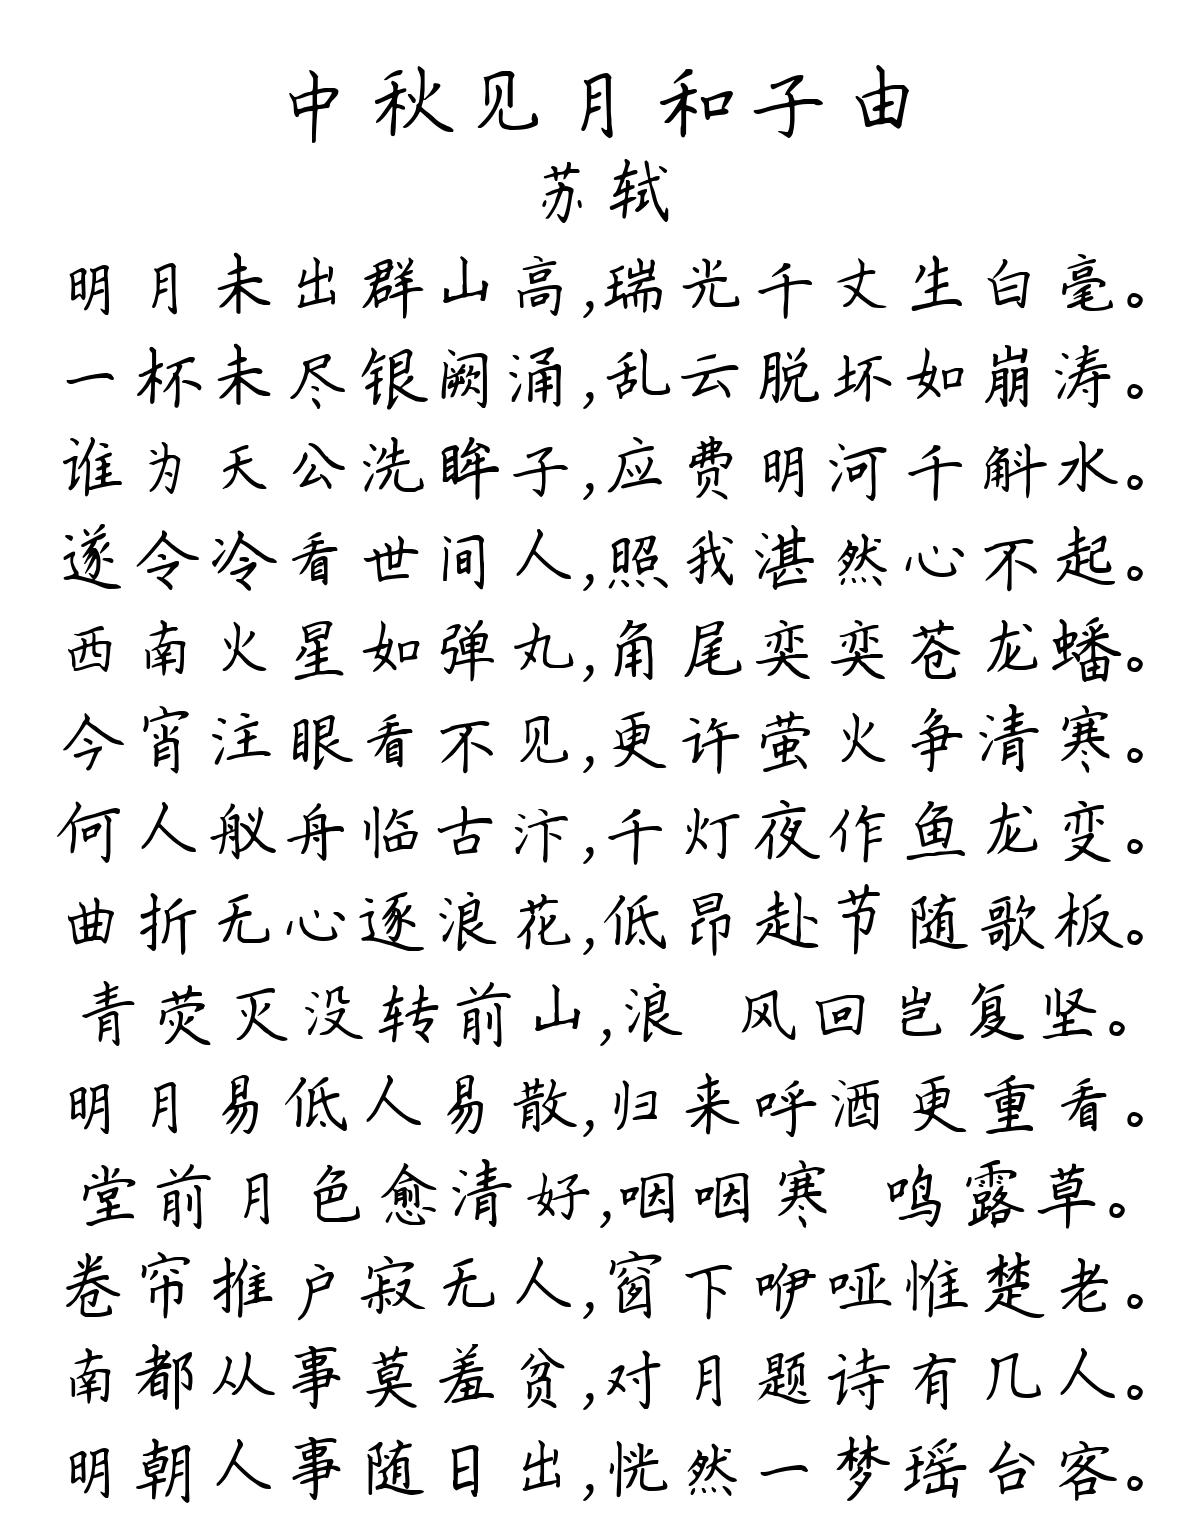 中秋见月和子由
苏轼
明月未出群山高,瑞光千丈生白毫。
一杯未尽银阙涌,乱云脱坏如崩涛。
谁为天公洗眸子,应费明河千斛水。
遂令冷看世间人,照我湛然心不起。
西南火星如弹丸,角尾奕奕苍龙蟠。
今宵注眼看不见,更许萤火争清寒。
何人舣舟临古汴,千灯夜作鱼龙变。
曲折无心逐浪花,低昂赴节随歌板。
青荧灭没转前山,浪 风回岂复坚。
明月易低人易散,归来呼酒更重看。
堂前月色愈清好,咽咽寒 鸣露草。
卷帘推户寂无人,窗下咿哑惟楚老。
南都从事莫羞贫,对月题诗有几人。
明朝人事随日出,恍然一梦瑶台客。